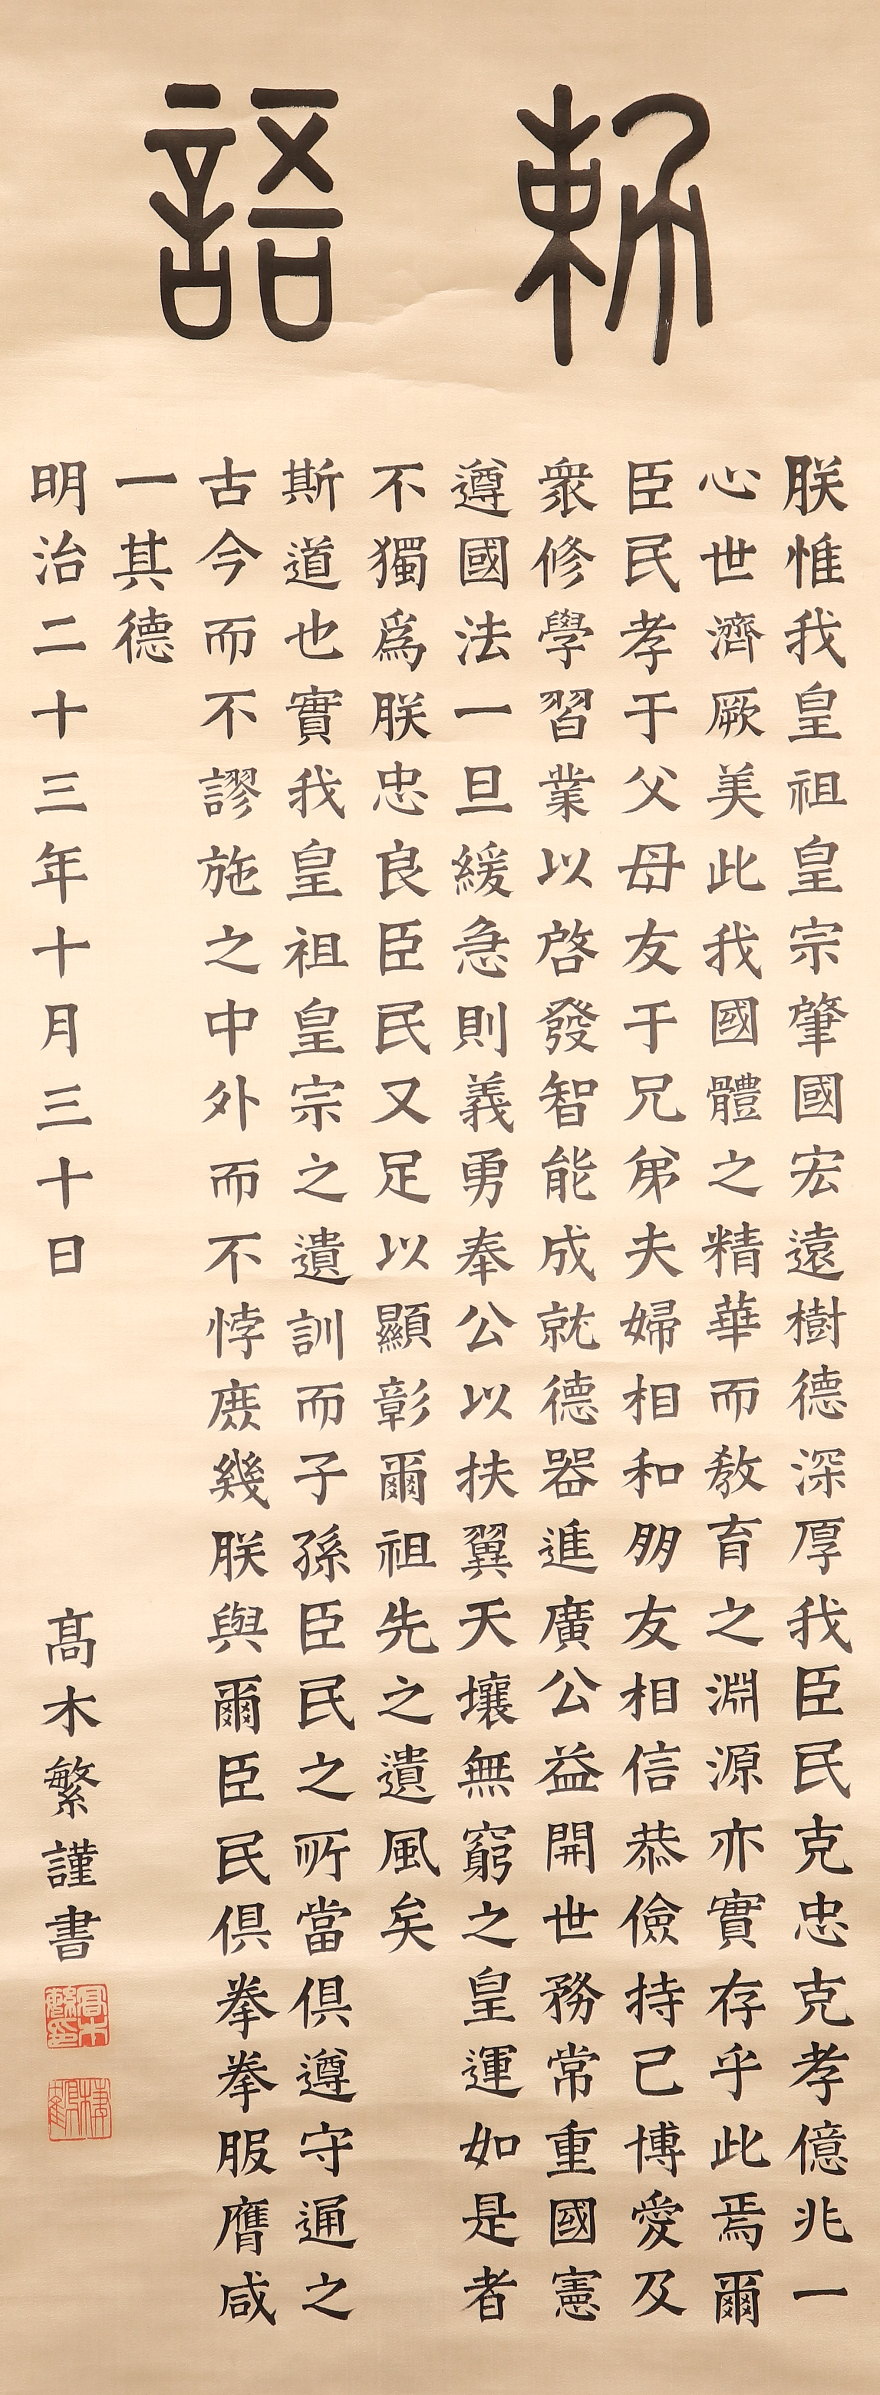 勅語
朕惟我皇祖皇宗肇國宏遠樹德深厚我臣民克忠克孝億兆一
心世濟厥美此我國體之精華而教育之淵源亦實存乎此焉爾
臣民孝于父母友于兄弟夫婦相和朋友相信恭儉持己博愛及
衆修學習業以啓發智能成就德器進廣公益開世務常重國憲
遵國法一旦緩急則義勇奉公以扶翼天壤無窮之皇運如是者
不獨爲朕忠良臣民又足以顯彰爾祖先之遺風矣
斯道也實我皇祖皇宗之遺訓而子孫臣民之所當俱遵守通之
古今而不謬施之中外而不悖庶幾朕與爾臣民俱拳拳服膺咸
一其德
明治二十三年十月三十日
髙木繁謹書